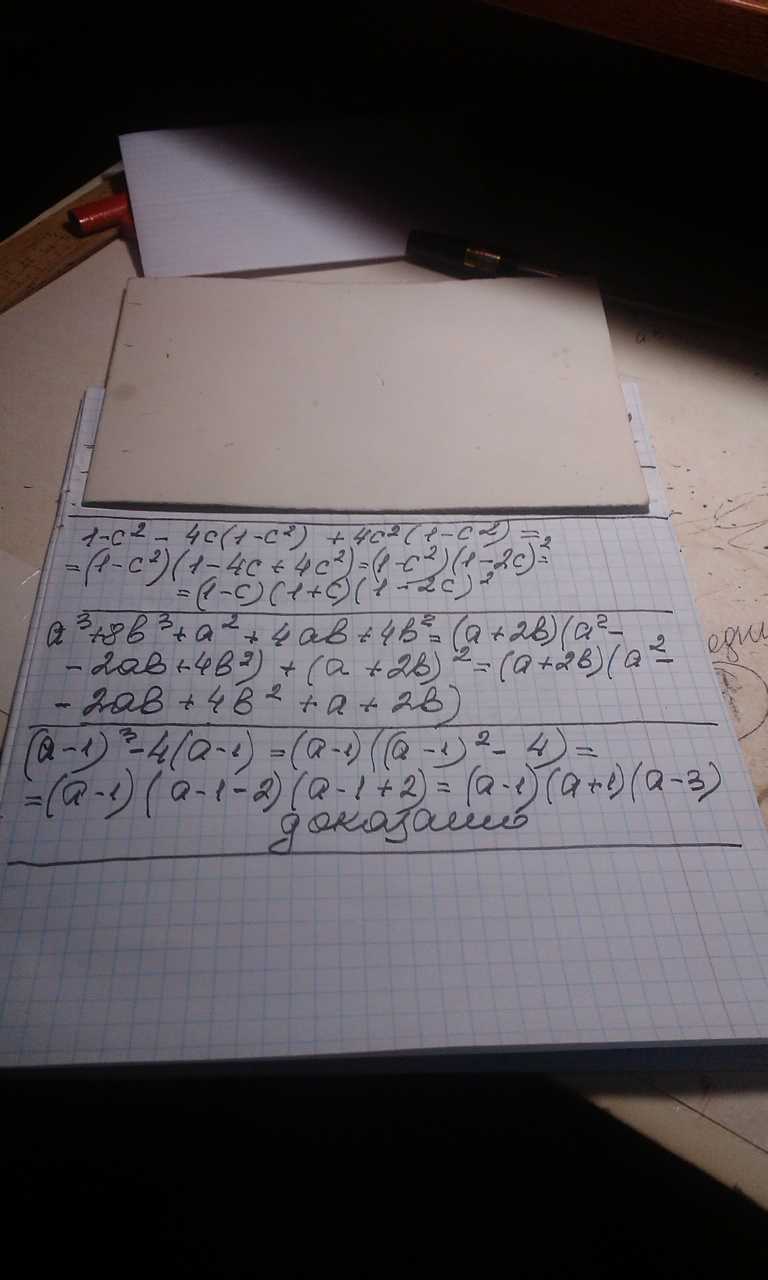 1-c² - 4c(1-c²) + 4c²(1-c²) =
=(1-c²)(1-4c+4c²)=(1-c²)(1-2c)²=
=(1-c)(1+c)(1-2c)²
a³+8b³+a²+4ab+4b²=(a+2b)(a²-
-2ab+4b²)+(a+2b)²=(a+2b)(a²-
-2ab+4b²+a+2b)
(a-1)³-4(a-1)=(a-1)((a-1)²-4)=
=(a-1)(a-1-2)(a-1+2)=(a-1)(a+1)(a-3)
доказано